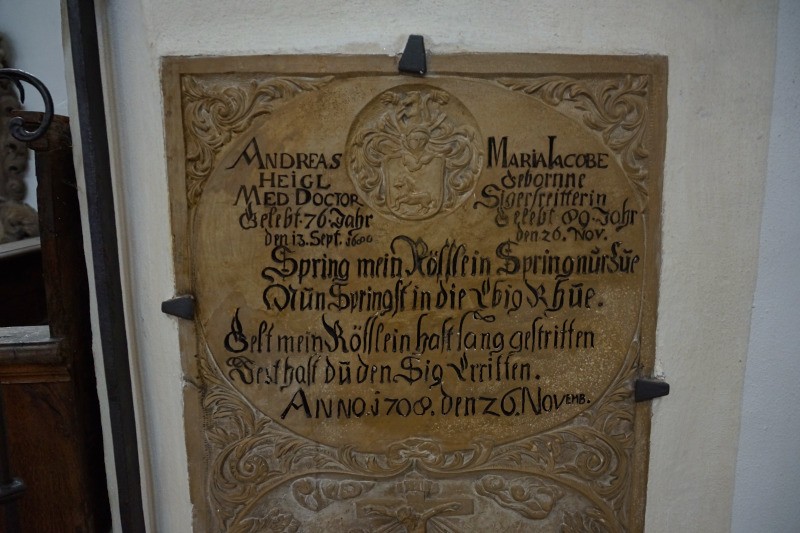 ANDREAS
HEIGL
MED DOCTOR
Gelebt 76 Jahr
den 13. Sept.
MARIA IACOBE
Gebornne
Sigersreitterin
Gelebt 80 Jahr
den 26. Nov.
Spring mein Rösslein Spring nur Zue
Nun Springst in die Ebig Rhue.
Gelt mein Rösslein hast lang gestritten
Vest hast du den Sig Erritten.
ANNO. 1708. den 26. NovEMB.